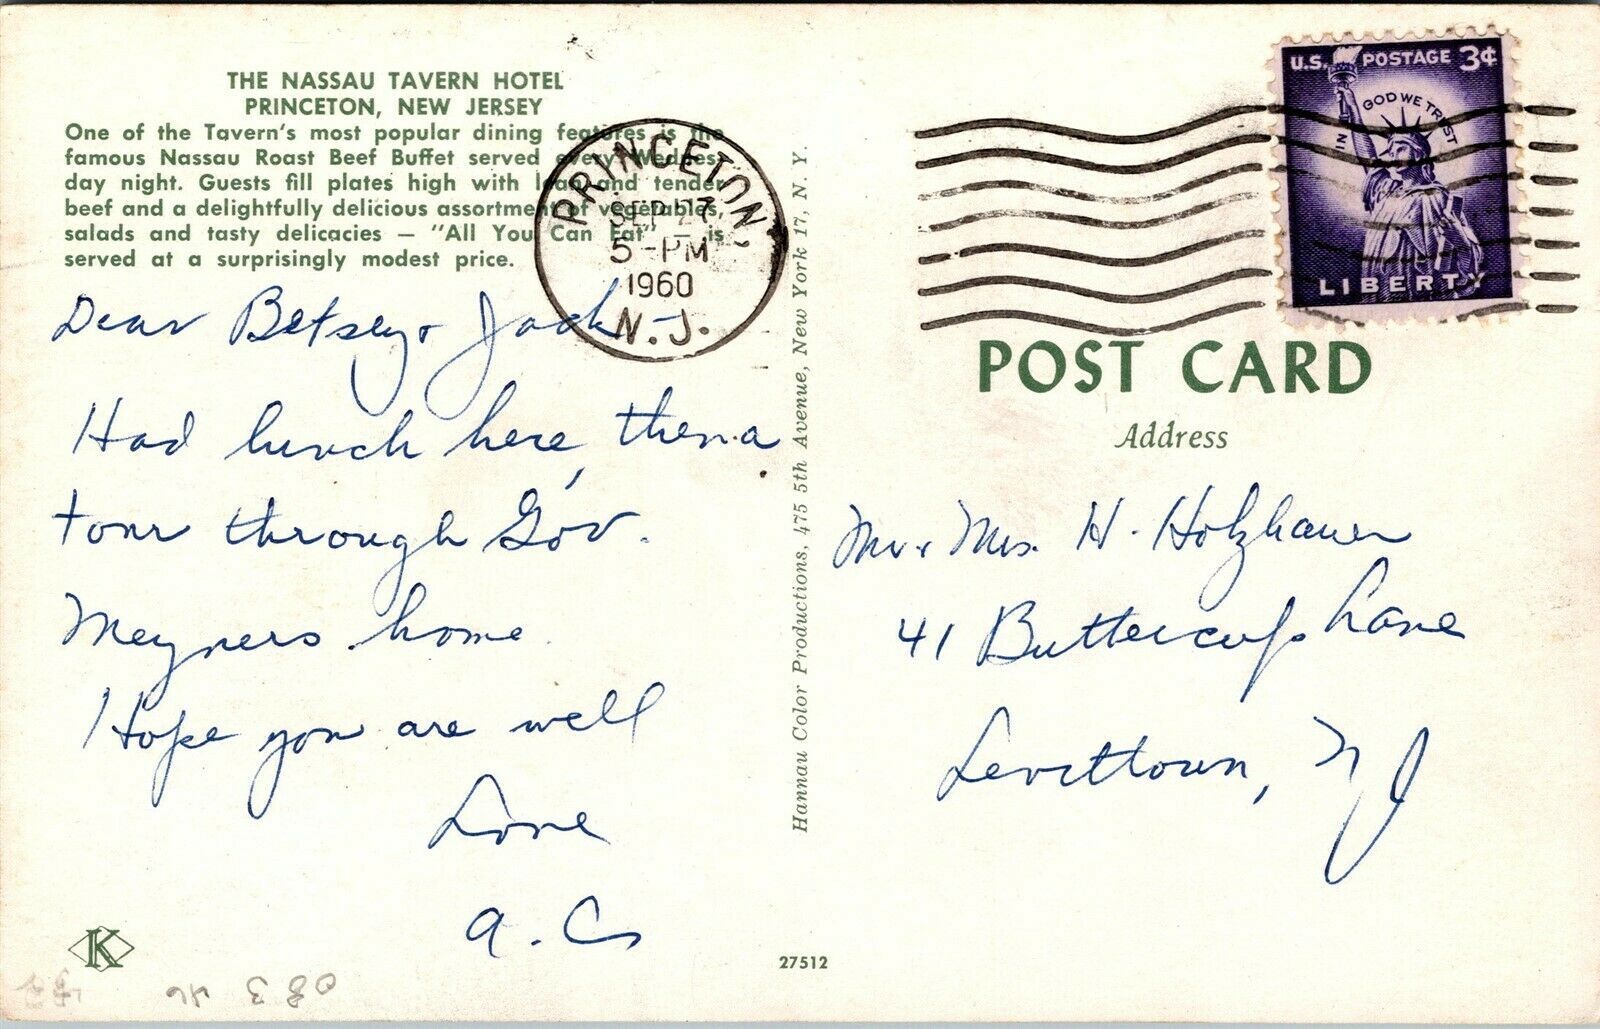 THE NASSAU TAVERN HOTEL
PRINCETON, NEW JERSEY
One of the Tavern's most popular dining features is the
famous Nassau Roast Beef Buffet served every Wednes-
day night. Guests fill plates high with lean and tender
beef and a delightfully delicious assortment of vegetables,
salads and tasty delicacies — "All You Can Eat" — is
served at a surprisingly modest price.
Dear Betsey & Jack -
Had lunch here, then a
tour through Gov.
Meyners home.
Hope you are well
Love
A. C.
K
PRINCETON
SEP 27
5-PM
1960
N.J.
Hannau Color Productions, 475 5th Avenue, New York 17, N. Y.
27512
U.S. POSTAGE 3¢
IN GOD WE TRUST
LIBERTY
POST CARD
Address
Mr & Mrs. H. Holzhauer
41 Buttercup Lane
Levittown, N J